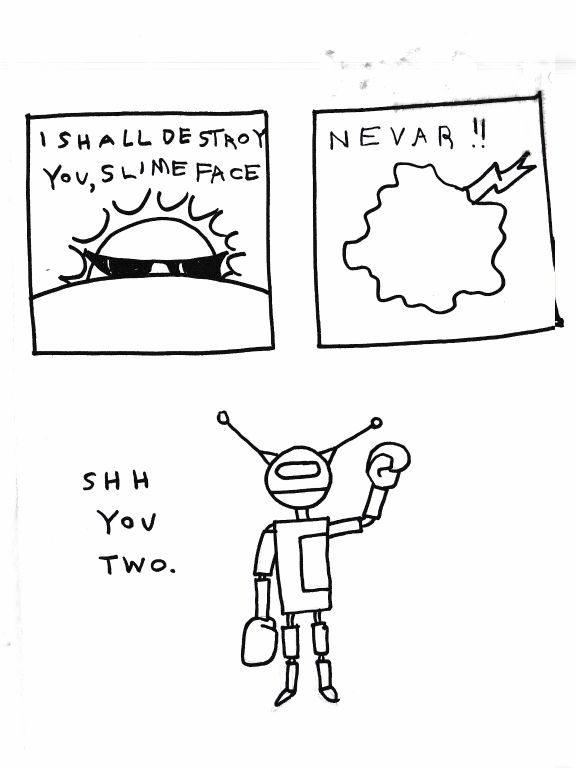 I SHALL DESTROY
YOU, SLIME FACE
NEVAR!!
SHH
YOU
TWO.